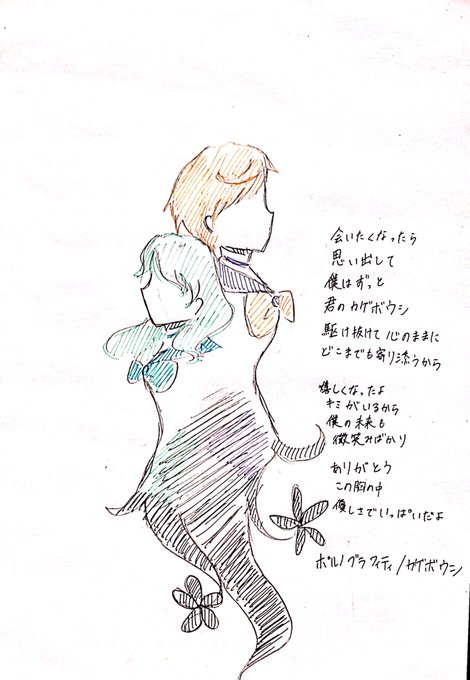 会いたくなったら
思い出して
僕はずっと
君のカゲボウシ
駆け抜けて心のままに
どこまでも寄り添うから
優しくなったよ
キミがいるから
僕の未来も
微笑みばかり
ありがとう
この胸の中
優しさでいっぱいだよ
ポルノグラフィティ/カゲボウシ